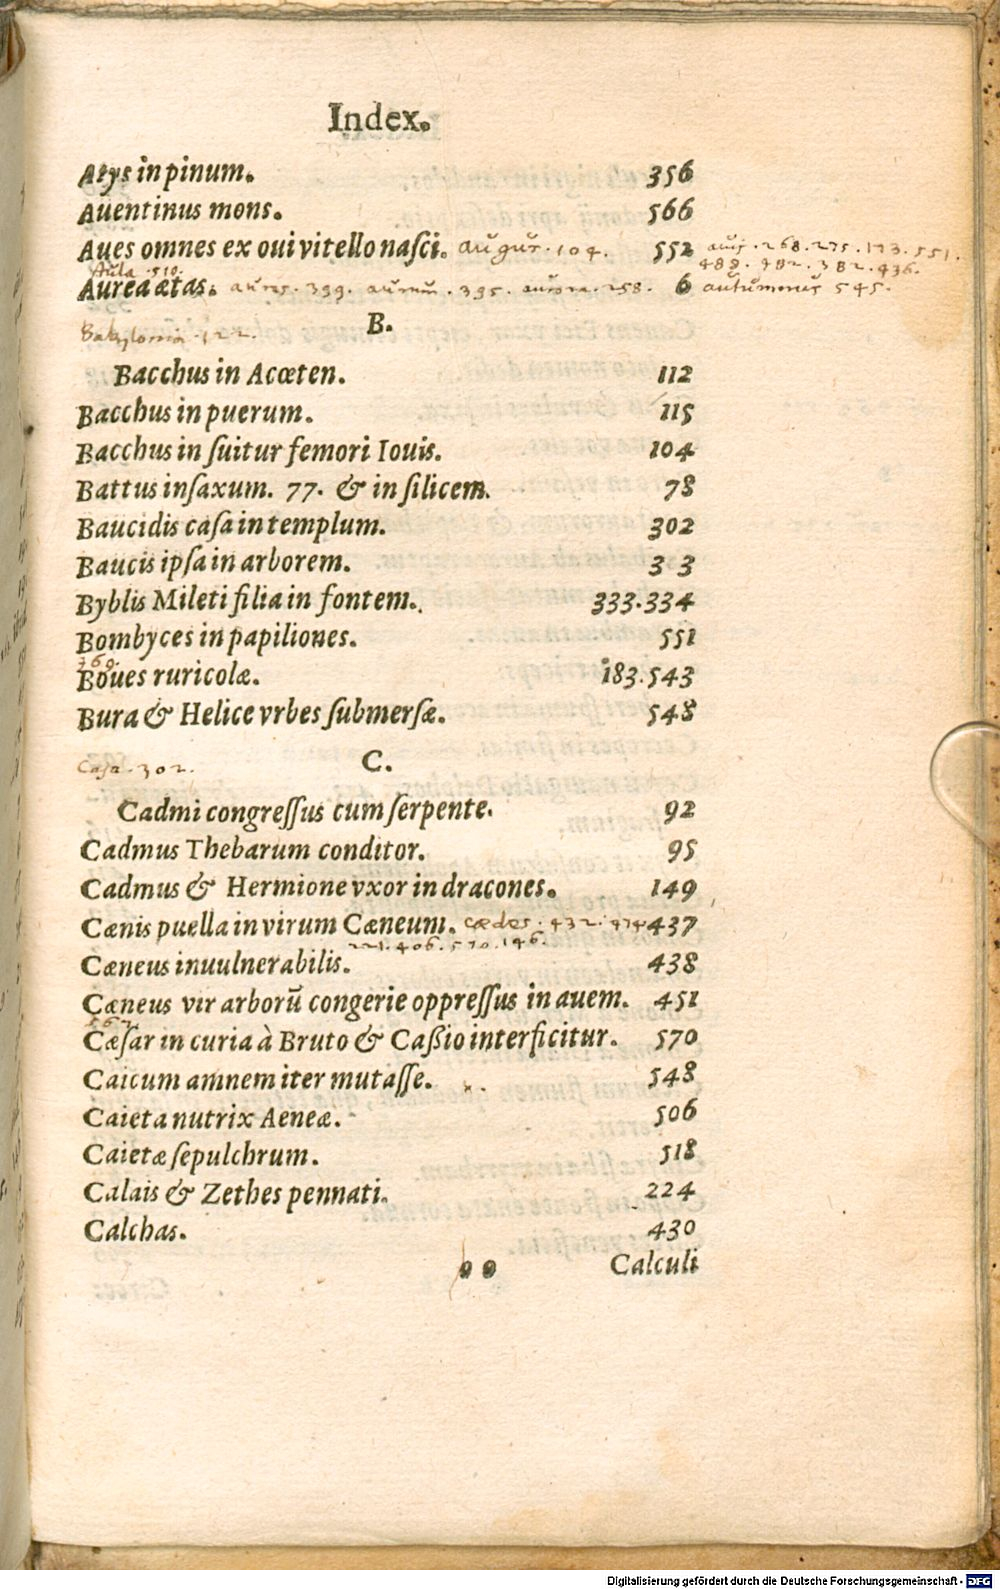 Index.
Atys in pinum. 356
Auentinus mons. 566
Aues omnes ex oui vitello nasci. augur. 104. 552 auis. 268. 275. 173. 551.
488. 482. 382. 436.
Aula. 510.
Aurea ætas. aures. 399. aurum. 395. aurora. 258. 6 autumnus 545.
B.
Babylonia. 122.
Bacchus in Acœten. 112
Bacchus in puerum. 115
Bacchus in suitur femori Iouis. 104
Battus in saxum. 77. & in silicem. 78
Baucidis casa in templum. 302
Baucis ipsa in arborem. 3 3
Byblis Mileti filia in fontem. 333.334
Bombyces in papiliones. 551
369.
Boues ruricolæ. 183.543
Bura & Helice vrbes submersæ. 548
C.
Casa. 302.
Cadmi congressus cum serpente. 92
Cadmus Thebarum conditor. 95
Cadmus & Hermione vxor in dracones. 149
Cænis puella in virum Cæneum. cædes. 432. 474 437
221. 406. 570. 146.
Cæneus inuulnerabilis. 438
Cæneus vir arborū congerie oppressus in auem. 451
Cæsar in curia à Bruto & Caßio interficitur. 570
Caicum amnem iter mutasse. 548
Caieta nutrix Aeneæ. 506
Caietæ sepulchrum. 518
Calais & Zethes pennati. 224
Calchas. 430
Calculi
Digitalisierung gefördert durch die Deutsche Forschungsgemeinschaft - DFG